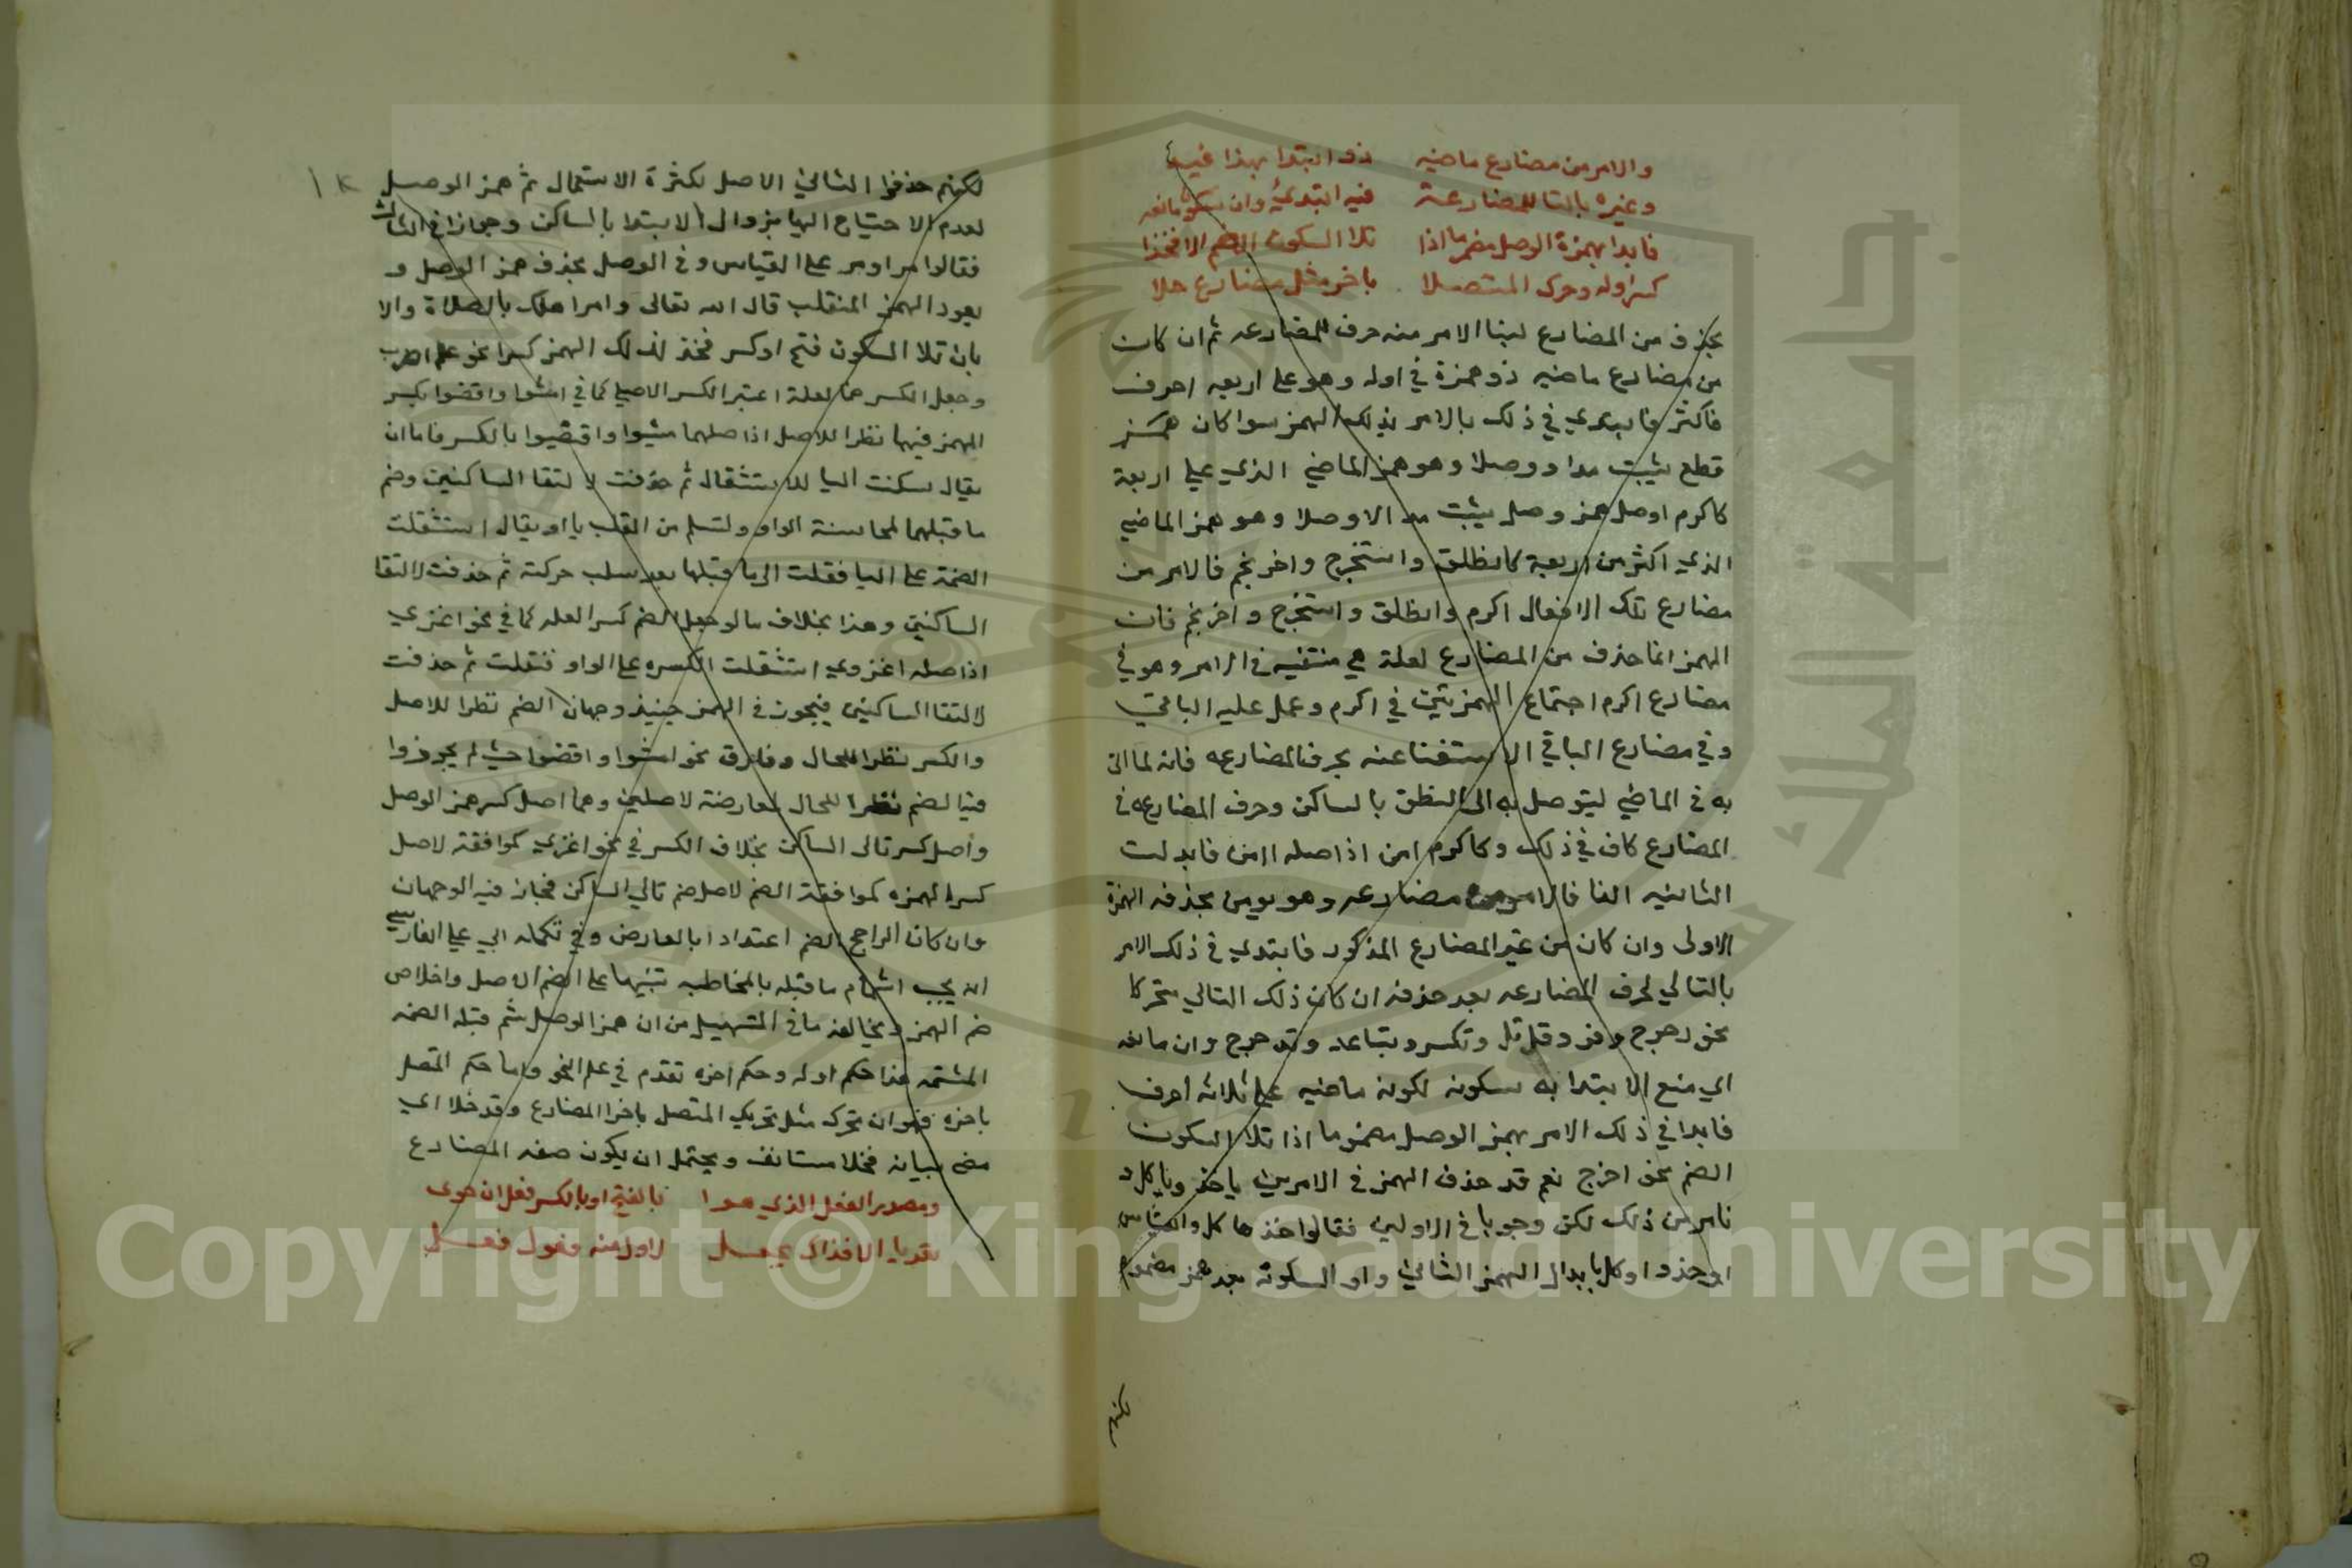 والامر من مضارع ماضيه ذو ابتدا بهذا فيه
وغيره بالتا للمضارعة فيه ابتدئ وان سكونا نعه
فابدا بهمزة الوصل مضموما اذا تلا السكون الضم الا فخذا
كسرا وله وحرك المتصلا باخر مثل مضارع حلا
يحذف من المضارع لبنا الامر منه حرف المضارعه ثم ان كان
من مضارع ماضيه ذو همزة في اوله وهو على اربعه احرف
فاكثر فابتدي في ذلك بالامر بذلك الهمز سوا كان همز
قطع يثبت بدا ووصلا وهو همز الماضي الذي على اربعة
كاكرم اوصل همز وصل يثبت بدا لا وصلا وهو همز الماضي
الذي اكثر من اربعة كانطلق واستخرج واخرنجم فالامر من
مضارع تلك الافعال اكرم وانطلق واستخرج واخرنجم فان
الهمز انما حذف من المضارع لعلة هي منتفيه في الامر وهو في
مضارع اكرم اجتماع الهمزتين في اكرم وحمل عليه الباقي
وفي مضارع الباقي الاستغنا عنه بحرف المضارعه فانه لما اتى
به في الماضي ليتوصل به الى النطق بالساكن وحرف المضارعه في
المضارع كاف في ذلك وكاكرم امن اذ اصله اامن فابدلت
الثانيه الفا فالامر من مضارعه وهو يومن بحذف الهمزة
الاولى وان كان من غير المضارع المذكور فابتدي في ذلك الامر
بالتالي لحرف المضارعه بعد حذفه ان كان ذلك التالي متحركا
نحو دحرج وفز وقل وتكسر وتباعد وتدحرج وان مانعه
اي منع الابتدا به سكونه لكونه ماضيه على ثلاثه احرف
فابدا في ذلك الامر بهمز الوصل مضموما اذا تلا السكون
الضم نحو اخرج نعم قد حذف الهمز في الامر من ياخذ وياكل و
نامر من ذلك لكن وجوبا في الاولين فقالوا خذ هاكل والقياس
اوخذ واوكل بابدال الهمز الثاني واو السكونه بعد همز مضموم
لكنهم
لكنهم حذفوا الثاني الاصل لكثرة الاستعمال ثم همز الوصل
لعدم الاحتياج اليها بزوال الابتدا بالساكن وجوازا في الثالث
فقالوا مر اومر على القياس وفي الوصل بحذف همز الوصل و
يعود الهمز المنقلب قال الله تعالى وامر اهلك بالصلاة والا
بان تلا السكون فتح او كسر فخذ لذلك الهمز كسرا نحو اعلم اضرب
وجعل الكسر هنا لعلة اعتبر الكسر الاصلي كما في امشوا واقضوا بكسر
الهمز فيها نظرا للاصل اذ اصلهما امشيوا واقضيوا بالكسر فاما ان
يقال سكنت اليا للاستثقال ثم حذفت لالتقا الساكنين وضم
ما قبلهما لمجانسة الواو ولتسلم من القلب يا او يقال استثقلت
الضمة على اليا فنقلت الى ما قبلها بعد سلب حركته ثم حذفت لالتقا
الساكنين وهذا بخلاف ما لو جعل الضم كسرا لعله كما في نحو اغزي
اذ اصله اغزوي استثقلت الكسره على الواو فنقلت ثم حذفت
لالتقا الساكنين فيجوز في الهمز حينيذ وجهان الضم نظرا للاصل
والكسر نظرا للحال وفارق نحو امشوا واقضوا حيث لم يجوزوا
فيه الضم نظرا للحال لمعارضته لاصلين وهما اصل كسر همز الوصل
واصل كسر تالى الساكن بخلاف الكسر في نحو اغزي لموافقته لاصل
كسر الهمزه كموافقة الضم لاصل ضم تالي الساكن فجاز فيه الوجهان
وان كان الراجح الضم اعتدادا بالعارض وفي تكملة ابي علي الفارسي
انه يجب اشمام ما قبله بالمخاطبه تنبيها على الضم الاصل واخلاص
ضم الهمز ويخالفه ما في التسهيل من ان همز الوصل تشم قبله الضمه
المشتمه هذا حكم اوله وحكم اخره تقدم في علم النحو واما حكم المتصل
باخره فهو ان تحرك مثل تحريك المتصل باخر المضارع وقد خلا اي
مضى بيانه فخلا مستانف ويحتمل ان يكون صفه المضارع
ومصدر الفعل الذي بالفتح او بالكسر فعل ان حوى
تعديا لاول منه وفعول فعل
Copyright © King Saud University
جامعة الملك سعود